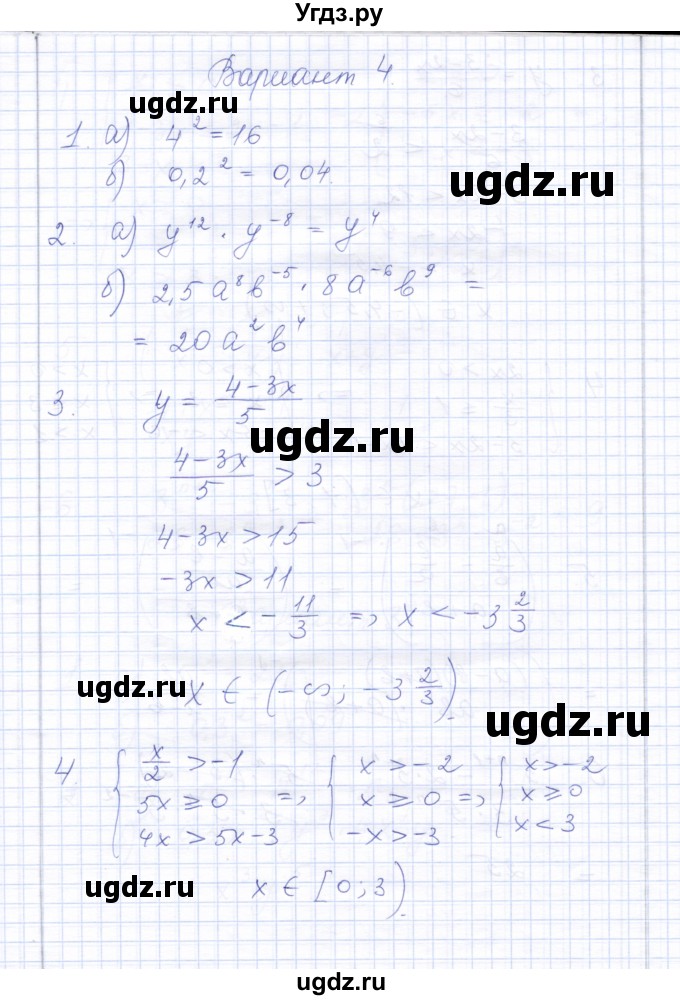 Угдз.ру
Вариант 4.
ugdz.ru
1. а) 4² = 16
ugdz.ru
б) 0,2² = 0,04.
2. а) y¹² · y⁻⁸ = y⁴
б) 2,5a⁸b⁻⁵ · 8a⁻⁶b⁹ =
= 20a²b⁴
3. y = (4-3x)/5
ugdz.ru
(4-3x)/5 > 3
4-3x > 15
-3x > 11
x < -11/3 => x < -3 2/3
ugdz.ru
x ∈ (-∞; -3 2/3).
ugdz.ru
4. { x/2 > -1 => { x > -2 => { x > -2
5x ≥ 0 x ≥ 0 x ≥ 0
4x > 5x-3 -x > -3 x < 3
ugdz.ru
x ∈ [0; 3).
ugdz.ru